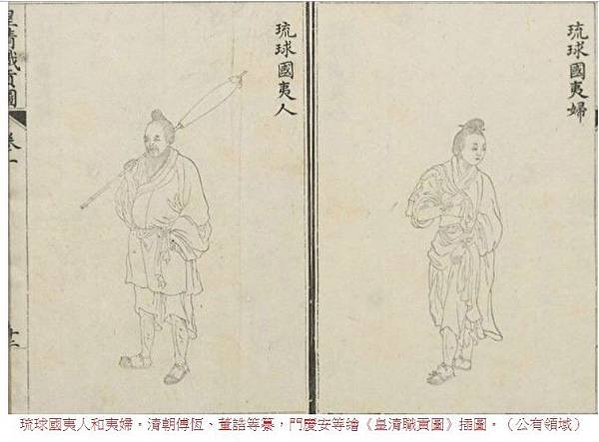 琉球國夷婦
琉球國夷人
皇清職貢圖
卷一
琉球國夷人和夷婦。清朝傅恆、董誥等纂，門慶安等繪《皇清職貢圖》插圖。（公有領域）